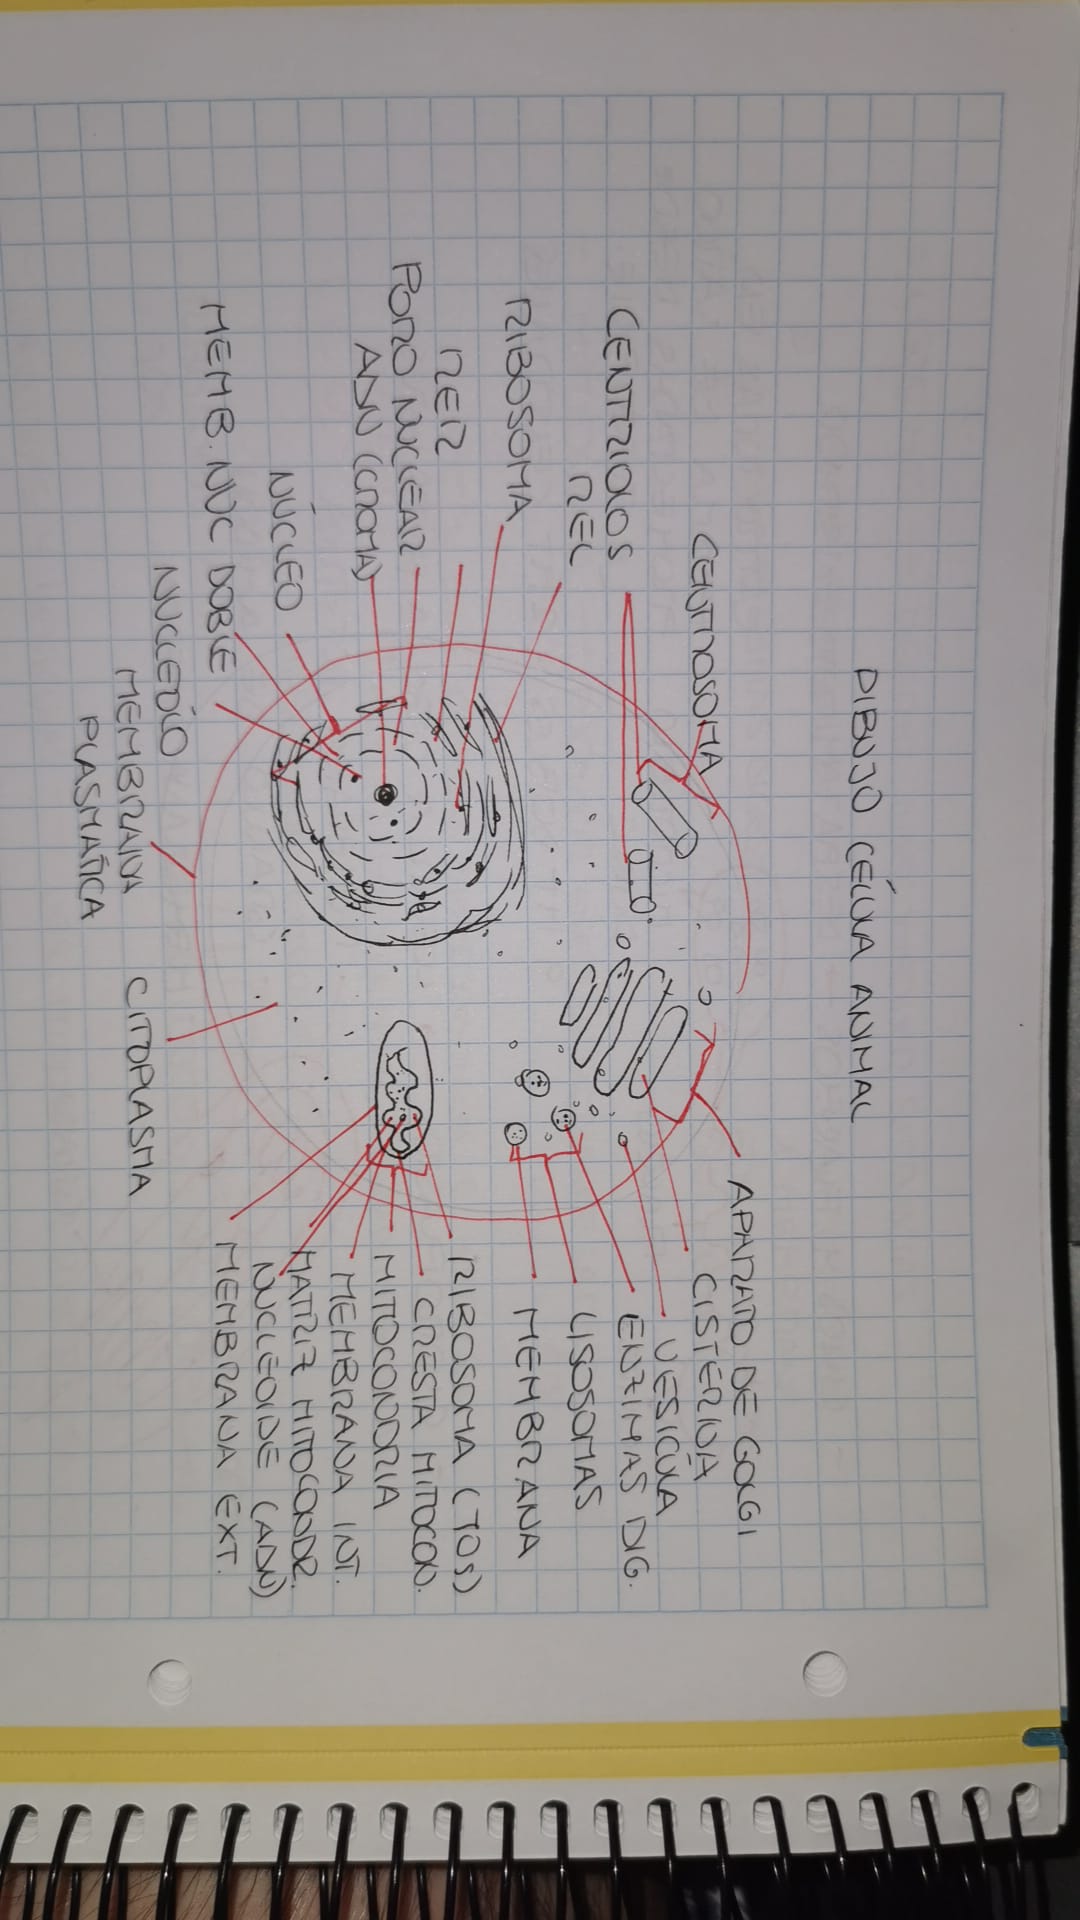 DIBUJO CÉLULA ANIMAL
CENTROSOMA
CENTRIOLOS
REL
RIBOSOMA
RER
PORO NUCLEAR
ADN (CROMA)
NÚCLEO
MEMB. NUC DOBLE
NUCLEOLO
MEMBRANA
PLASMÁTICA
CITOPLASMA
APARATO DE GOLGI
CISTERNA
VESICULA
ENZIMAS DIG.
LISOSOMAS
MEMBRANA
RIBOSOMA (70s)
CRESTA MITOCON.
MITOCONDRIA
MEMBRANA INT.
MATRIZ MITOCONDR.
NUCLEOIDE (ADN)
MEMBRANA EXT.